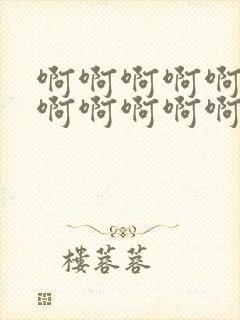 啊啊啊啊啊
啊啊啊啊啊
楼蓉蓉